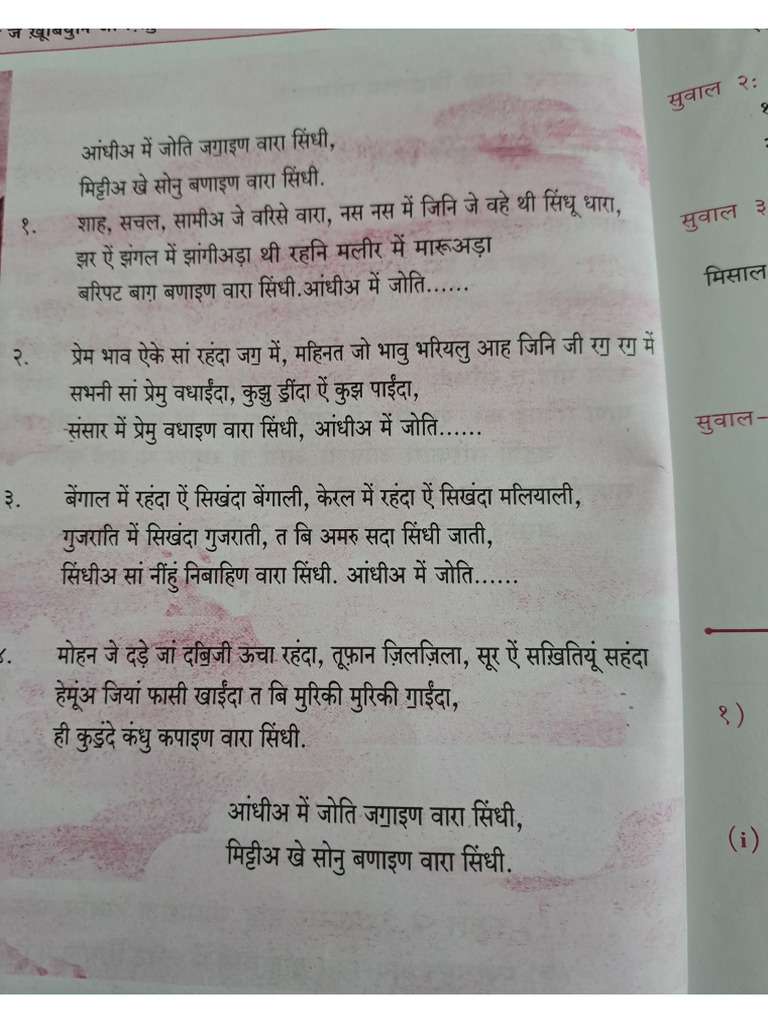 आंधीअ में जोति जॻाइण वारा सिंधी,
मिट्टीअ खे सोनु बणाइण वारा सिंधी.
१. शाह, सचल, सामीअ जे वरिसे वारा, नस नस में जिनि जे वहे थी सिंधू धारा,
झर ऐं झंगल में झांगीअड़ा थी रहनि मलीर में मारूअड़ा
बरिपट बाग़ बणाइण वारा सिंधी.आंधीअ में जोति......
२. प्रेम भाव ऐके सां रहंदा जॻ में, महिनत जो भावु भरियलु आह जिनि जी रॻ रॻ में
सभनी सां प्रेमु वधाईंदा, कुझु ॾींदा ऐं कुझ पाईंदा,
संसार में प्रेमु वधाइण वारा सिंधी, आंधीअ में जोति......
३. बेंगाल में रहंदा ऐं सिखंदा बेंगाली, केरल में रहंदा ऐं सिखंदा मलियाली,
गुजराति में सिखंदा गुजराती, त बि अमरु सदा सिंधी जाती,
सिंधीअ सां नींहुं निबाहिण वारा सिंधी. आंधीअ में जोति......
४. मोहन जे दड़े जां दॿिजी ऊचा रहंदा, तूफ़ान ज़िलज़िला, सूर ऐं सख़ितियूं सहंदा
हेमूंअ जियां फासी खाईंदा त बि मुरिकी मुरिकी ॻाईंदा,
ही कुॾंदे कंधु कपाइण वारा सिंधी.
आंधीअ में जोति जॻाइण वारा सिंधी,
मिट्टीअ खे सोनु बणाइण वारा सिंधी.
सुवाल २:
सुवाल ३
मिसाल
सुवाल-
१)
(i)